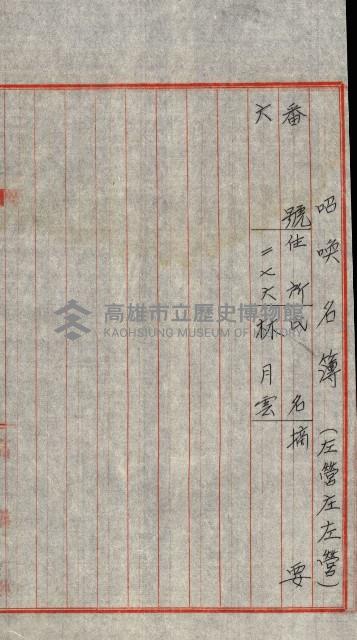 召喚名簿(左營庄左營)
番號住所氏名摘要
六二七六林月雲
高雄市立歷史博物館
KAOHSIUNG MUSEUM OF HISTORY